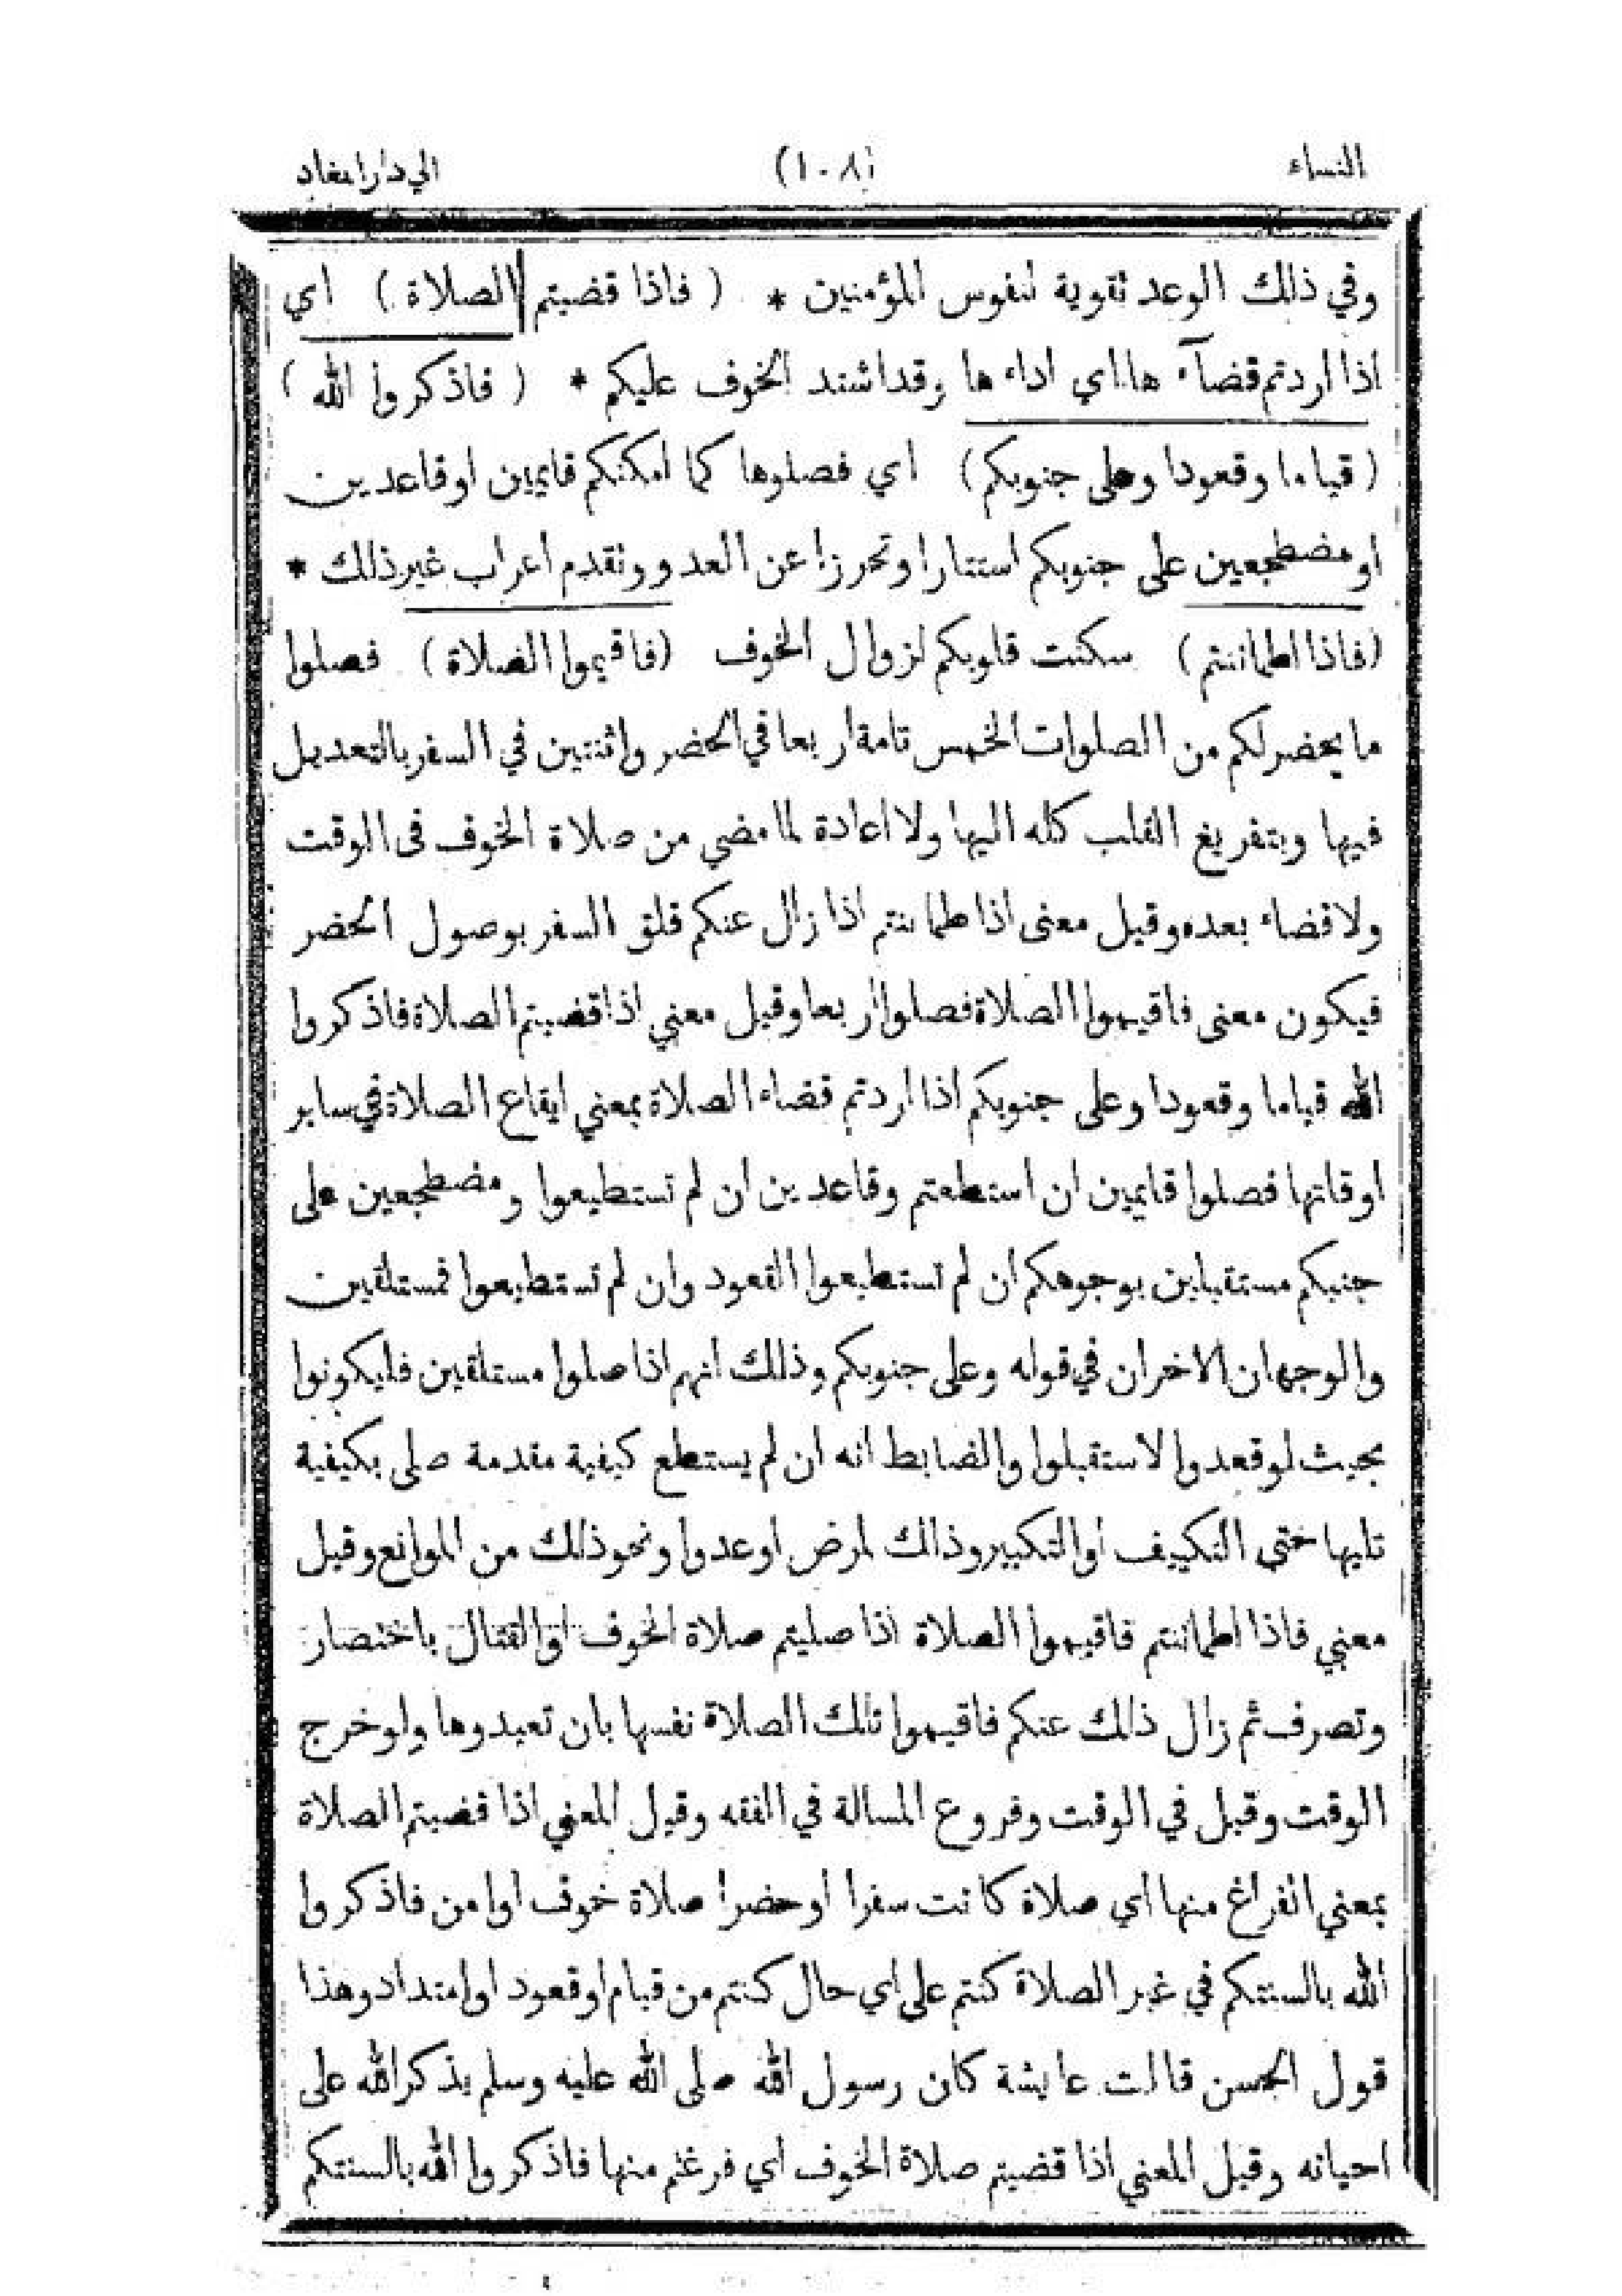 النساء (١٠٨) الي دار المعاد
وفي ذلك الوعد تقوية لنفوس المؤمنين * ( فاذا قضيتم الصلاة ) اي
اذا اردتم قضآء ها اي اداء ها وقد اشتد الخوف عليكم * ( فاذكروا الله )
( قياما وقعودا وعلى جنوبكم ) اي فصلوها كما امكنكم قايمين او قاعدين
او مضطجعين على جنوبكم استتارا وتحرزا عن العدو وتقدم اعراب غير ذلك *
( فاذا اطماننتم ) سكنت قلوبكم لزوال الخوف ( فاقيموا الصلاة ) فصلوا
ما يحضر لكم من الصلوات الخمس تامة اربعا في الحضر واثنتين في السفر بالتعديل
فيها وبتفريغ القلب كله اليها ولا اعادة لما مضي من صلاة الخوف فى الوقت
ولا قضاء بعده وقيل معنى اذا طماننتم اذا زال عنكم قلق السفر بوصول الحضر
فيكون معنى فاقيموا الصلاة فصلوا اربعا وقيل معني اذا قضيتم الصلاة فاذكروا
الله قياما وقعودا وعلى جنوبكم اذا اردتم قضاء الصلاة بمعني ايقاع الصلاة في ساير
اوقاتها فصلوا قايمين ان استطعتم وقاعدين ان لم تستطيعوا ومضطجعين على
جنبكم مستقبلين بوجوهكم ان لم تستطيعوا القعود وان لم تستطيعوا فمستلقين
والوجهان الاخران في قوله وعلى جنوبكم وذلك انهم اذا صلوا مستلقين فليكونوا
بحيث لو قعدوا لاستقبلوا والضابط انه ان لم يستطع كيفية مقدمة صلى بكيفية
تليها حتى التكييف او التكبير وذلك لمرض او عدوا ونحو ذلك من الموانع وقيل
معني فاذا اطماننتم فاقيموا الصلاة اذا صليتم صلاة الخوف او القتال باختصار
وتصرف ثم زال ذلك عنكم فاقيموا تلك الصلاة نفسها بان تعيدوها ولو خرج
الوقت وقيل في الوقت وفروع المسالة في الفقه وقيل المعني اذا قضيتم الصلاة
بمعني الفراغ منها اي صلاة كانت سفرا او حضرا صلاة خوف او امن فاذكروا
الله بالسنتكم في غير الصلاة كنتم على اي حال كنتم من قيام او قعود او امتداد وهذا
قول الحسن قالت عايشة كان رسول الله صلى الله عليه وسلم يذكر الله على
احيانه وقيل المعني اذا قضيتم صلاة الخوف اي فرغتم منها فاذكروا الله بالسنتكم